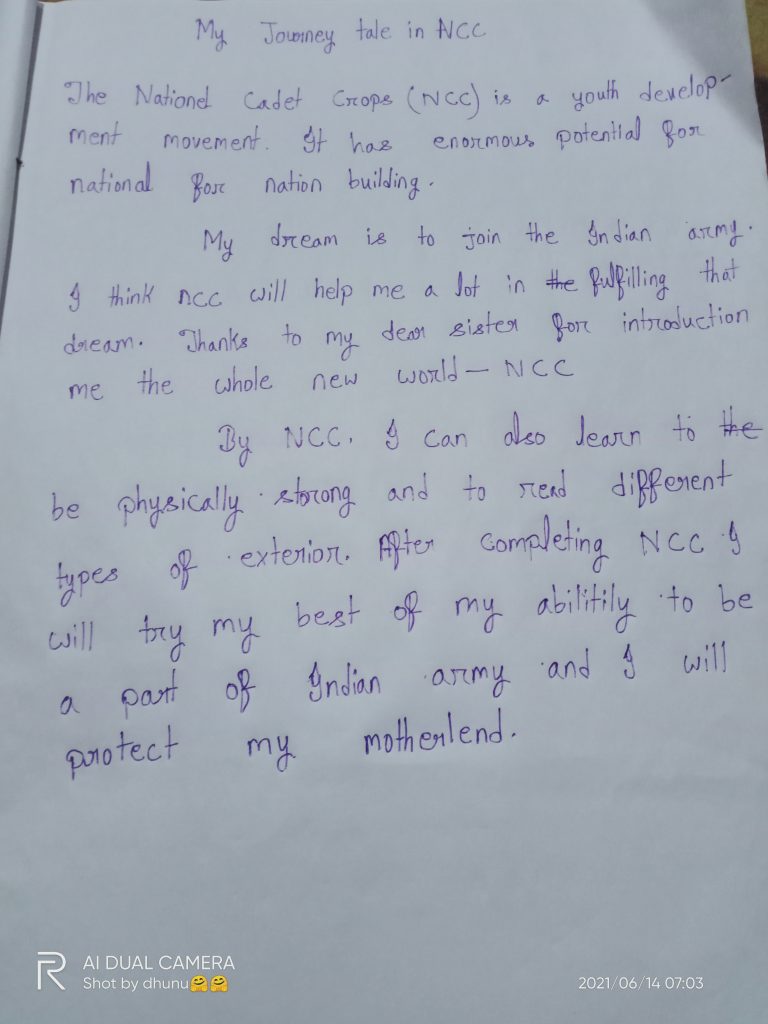 My Journey tale in NCC
The Nationel Cadet Crops (NCC) is a youth develop-
ment movement. It has enormous potential for
national for nation building.
My dream is to join the Indian army.
I think ncc will help me a lot in the fulfilling that
dream. Thanks to my dear sister for introduction
me the whole new world — NCC
By NCC, I can also learn to the
be physically strong and to read different
types of exterior. After completing NCC I
will try my best of my abilitily to be
a part of Indian army and I will
protect my motherlend.
AI DUAL CAMERA
Shot by dhunu🤗🤗
2021/06/14 07:03